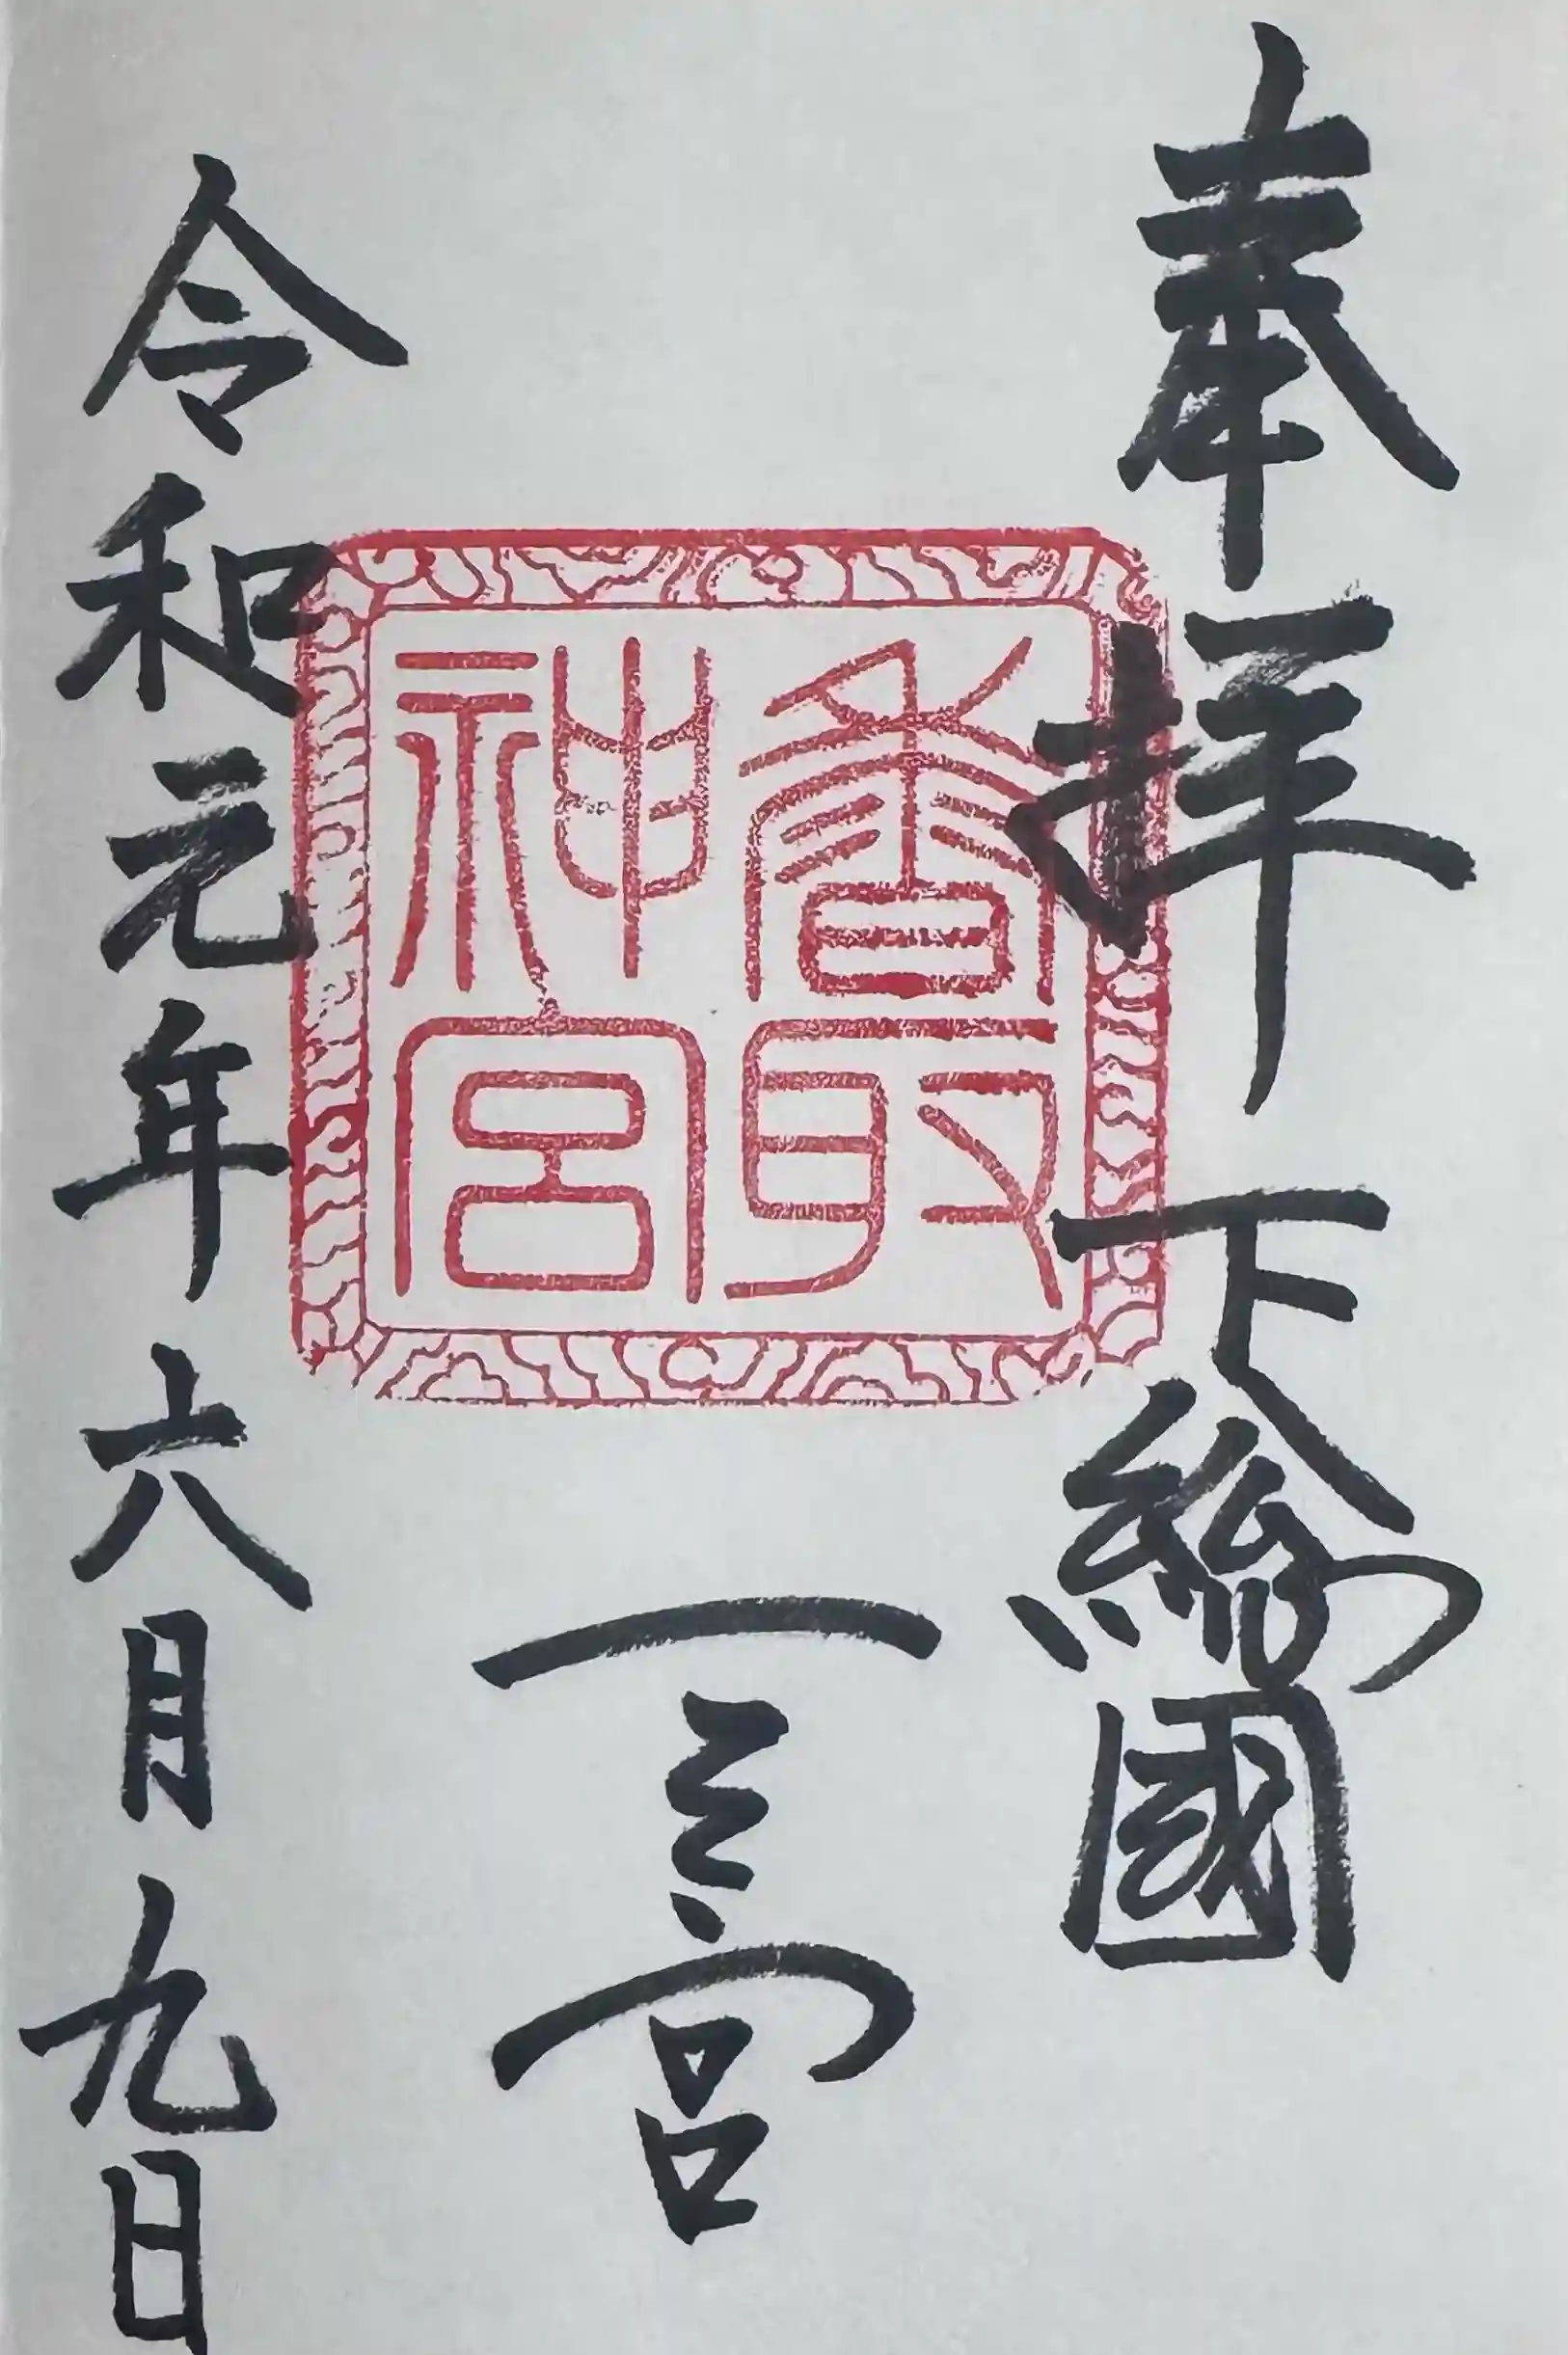 奉拝 下総國
香取
神宮
一之宮
令和元年六月九日